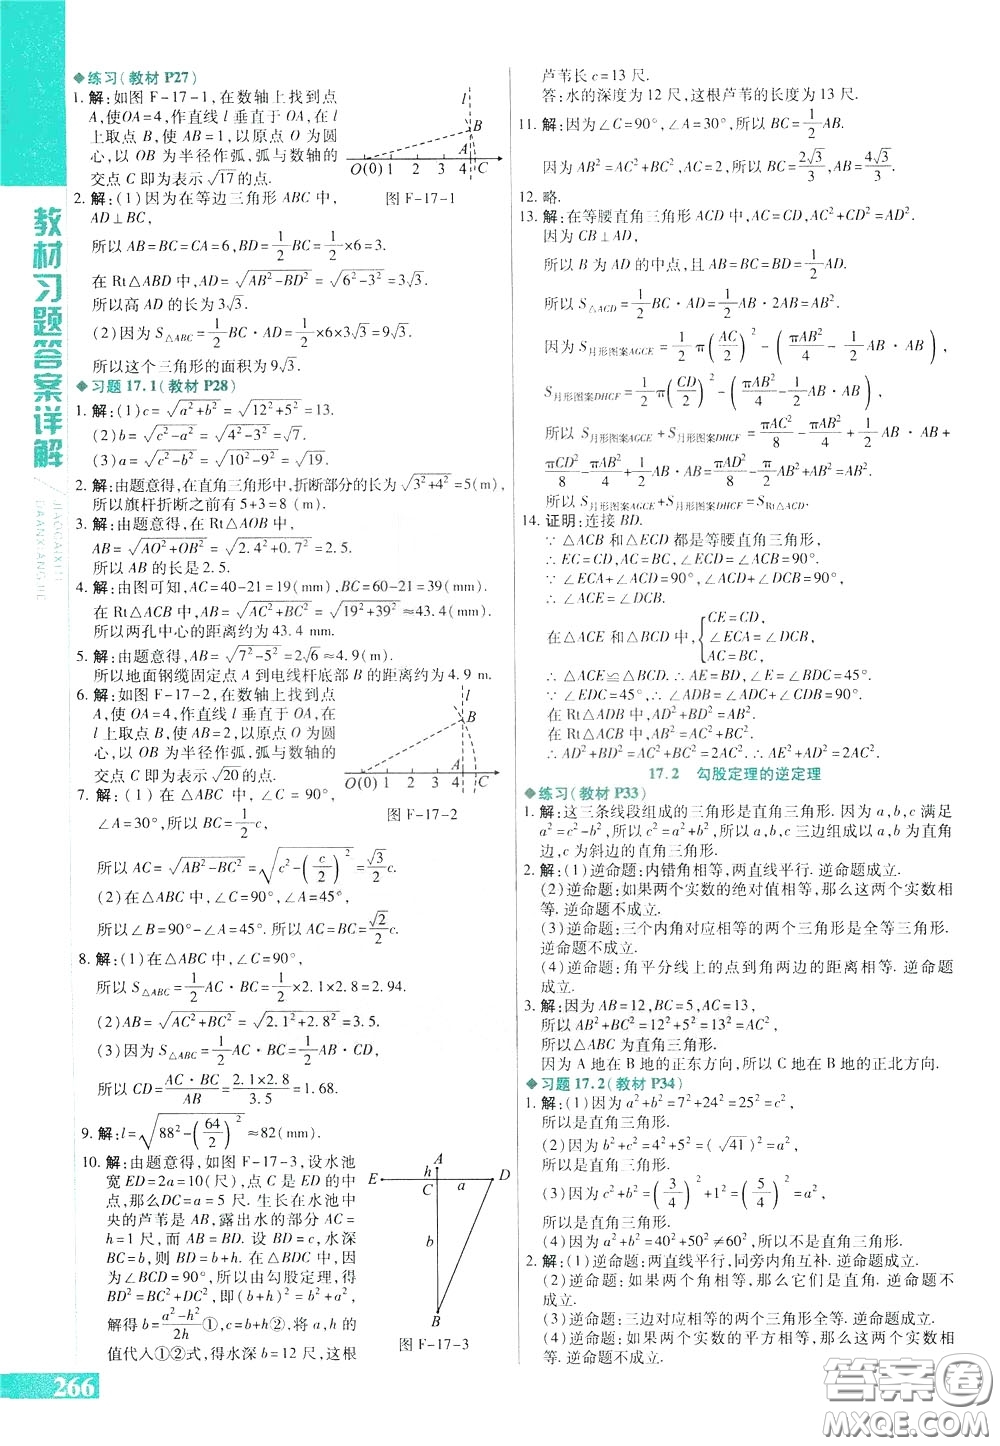 教材习题答案详解
JIAOCAIXITI
DAANXIANGJIE
◆练习(教材 P27)
1. 解:如图 F-17-1,在数轴上找到点
A,使OA=4,作直线 l 垂直于 OA,在
l 上取点 B,使 AB=1,以原点 O 为圆
心,以 OB 为半径作弧,弧与数轴的
交点 C 即为表示√17的点.
l
B
A
O(0) 1 2 3 4 C
图 F-17-1
2. 解:(1)因为在等边三角形 ABC 中,
AD⊥BC,
所以 AB=BC=CA=6,BD=1/2BC=1/2×6=3.
在 Rt△ABD 中,AD=√(AB²-BD²)=√(6²-3²)=3√3.
所以高 AD 的长为 3√3.
(2)因为 S△ABC=1/2BC·AD=1/2×6×3√3=9√3.
所以这个三角形的面积为 9√3.
◆习题 17.1(教材 P28)
1. 解:(1)c=√(a²+b²)=√(12²+5²)=13.
(2)b=√(c²-a²)=√(4²-3²)=√7.
(3)a=√(c²-b²)=√(10²-9²)=√19.
2. 解:由题意得,在直角三角形中,折断部分的长为√(3²+4²)=5(m),
所以旗杆折断之前有 5+3=8(m).
3. 解:由题意得,在 Rt△AOB 中,
AB=√(AO²+OB²)=√(2.4²+0.7²)=2.5.
所以 AB 的长是 2.5.
4. 解:由图可知,AC=40-21=19(mm),BC=60-21=39(mm).
在 Rt△ACB 中,AB=√(AC²+BC²)=√(19²+39²)≈43.4(mm).
所以两孔中心的距离约为 43.4 mm.
5. 解:由题意得,AB=√(7²-5²)=2√6≈4.9(m).
所以地面钢缆固定点 A 到电线杆底部 B 的距离约为 4.9 m.
6. 解:如图 F-17-2,在数轴上找到点
A,使OA=4,作直线 l 垂直于 OA,在
l 上取点 B,使 AB=2,以原点 O 为圆
心,以 OB 为半径作弧,弧与数轴的
交点 C 即为表示√20的点.
l
B
A
O(0) 1 2 3 4 C
图 F-17-2
7. 解:(1)在△ABC 中,∠C=90°,
∠A=30°,所以 BC=1/2c,
所以 AC=√(AB²-BC²)=√(c²-(c/2)²)=√3/2c.
(2)在△ABC 中,∠C=90°,∠A=45°,
所以∠B=90°-∠A=45°.所以 AC=BC=√2/2c.
8. 解:(1)在△ABC 中,∠C=90°,
所以 S△ABC=1/2AC·BC=1/2×2.1×2.8=2.94.
(2)AB=√(AC²+BC²)=√(2.1²+2.8²)=3.5.
(3)因为1/2AC·BC=1/2AB·CD,
所以 CD=AC·BC/AB=2.1×2.8/3.5=1.68.
9. 解:l=√(88²-(64/2)²)≈82(mm).
10. 解:由题意得,如图 F-17-3,设水池
宽 ED=2a=10(尺),点 C 是 ED 的中
点,那么DC=a=5 尺.生长在水池中
央的芦苇是 AB,露出水的部分 AC=
h=1 尺,而 AB=BD.设 BD=c,水深
BC=b,所以 BD=b+h.在△BDC 中,
∠BCD=90°,所以由勾股定理,得
BD²=BC²+DC²,即(b+h)²=b²+a²,
解得 b=(a²-h²)/2h①,c=b+h②.将 a,h
的值代入①②式,得水深 b=12 尺,这根
A
h
E C a D
b
B
图 F-17-3
芦苇长 c=13 尺.
答:水的深度为 12 尺,这根芦苇的长度为 13 尺.
11. 解:因为∠C=90°,∠A=30°,所以 BC=1/2AB.
因为 AB²=AC²+BC²,AC=2,所以 BC=2√3/3,AB=4√3/3.
12. 略.
13. 解:在等腰直角三角形 ACD 中,AC=CD,AC²+CD²=AD².
因为 CB⊥AD,
所以 B 为 AD 的中点,且 AB=BC=1/2AD.
所以 S△ACD=1/2BC·AD=1/2AB·2AB=AB².
因为 S月形图案AGCE=1/2π(AC/2)²-(πAB²/4-1/2AB·AB),
S月形图案DHCF=1/2π(CD/2)²-(πAB²/4-1/2AB²),
所以 S月形图案AGCE+S月形图案DHCF=πAC²/8-πAB²/4+1/2AB·AB+
πCD²/8-πAB²/4+1/2AB²=πAD²/8-πAB²/2+AB²=AB².
所以 S月形图案AGCE+S月形图案DHCF=SRt△ACD.
14. 证明:连接 BD.
∵△ACB 和△ECD 都是等腰直角三角形,
∴EC=CD,AC=BC,∠ECD=∠ACB=90°.
∵∠ECA+∠ACD=90°,∠ACD+∠DCB=90°,
∴∠ACE=∠DCB.
在△ACE 和△BCD 中,{CE=CD,
∠ECA=∠DCB,
AC=BC,
∴△ACE≌△BCD.∴AE=BD,∠E=∠BDC=45°.
∵∠EDC=45°,∴∠ADB=∠ADC+∠CDB=90°.
在 Rt△ADB 中,AD²+BD²=AB².
在 Rt△ACB 中,AB²=AC²+BC²=2AC²,
∴AD²+BD²=AC²+BC²=2AC².∴AE²+AD²=2AC².
17.2 勾股定理的逆定理
◆练习(教材 P33)
1. 解:这三条线段组成的三角形是直角三角形.因为 a,b,c 满足
a²=c²-b²,所以c²=a²+b²,所以a,b,c 三边组成以 a,b 为直角
边,c 为斜边的直角三角形.
2. 解:(1)逆命题:内错角相等,两直线平行.逆命题成立.
(2)逆命题:如果两个实数的绝对值相等,那么这两个实数相
等.逆命题不成立.
(3)逆命题:三个内角对应相等的两个三角形是全等三角形.
逆命题不成立.
(4)逆命题:角平分线上的点到角两边的距离相等.逆命题
成立.
3. 解:因为 AB=12,BC=5,AC=13,
所以 AB²+BC²=12²+5²=13²=AC²,
所以△ABC 为直角三角形.
因为 A 地在 B 地的正东方向,所以 C 地在 B 地的正北方向.
◆习题 17.2(教材 P34)
1. 解:(1)因为 a²+b²=7²+24²=25²=c²,
所以是直角三角形.
(2)因为 b²+c²=4²+5²=(√41)²=a²,
所以是直角三角形.
(3)因为 c²+b²=(3/4)²+1²=(5/4)²=a²,
所以是直角三角形.
(4)因为 a²+b²=40²+50²≠60²,所以不是直角三角形.
2. 解:(1)逆命题:两直线平行,同旁内角互补.逆命题成立.
(2)逆命题:如果两个角相等,那么它们是直角.逆命题不
成立.
(3)逆命题:三边对应相等的两个三角形全等.逆命题成立.
(4)逆命题:如果两个实数的平方相等,那么这两个实数
266
答案圈
MXQE.COM